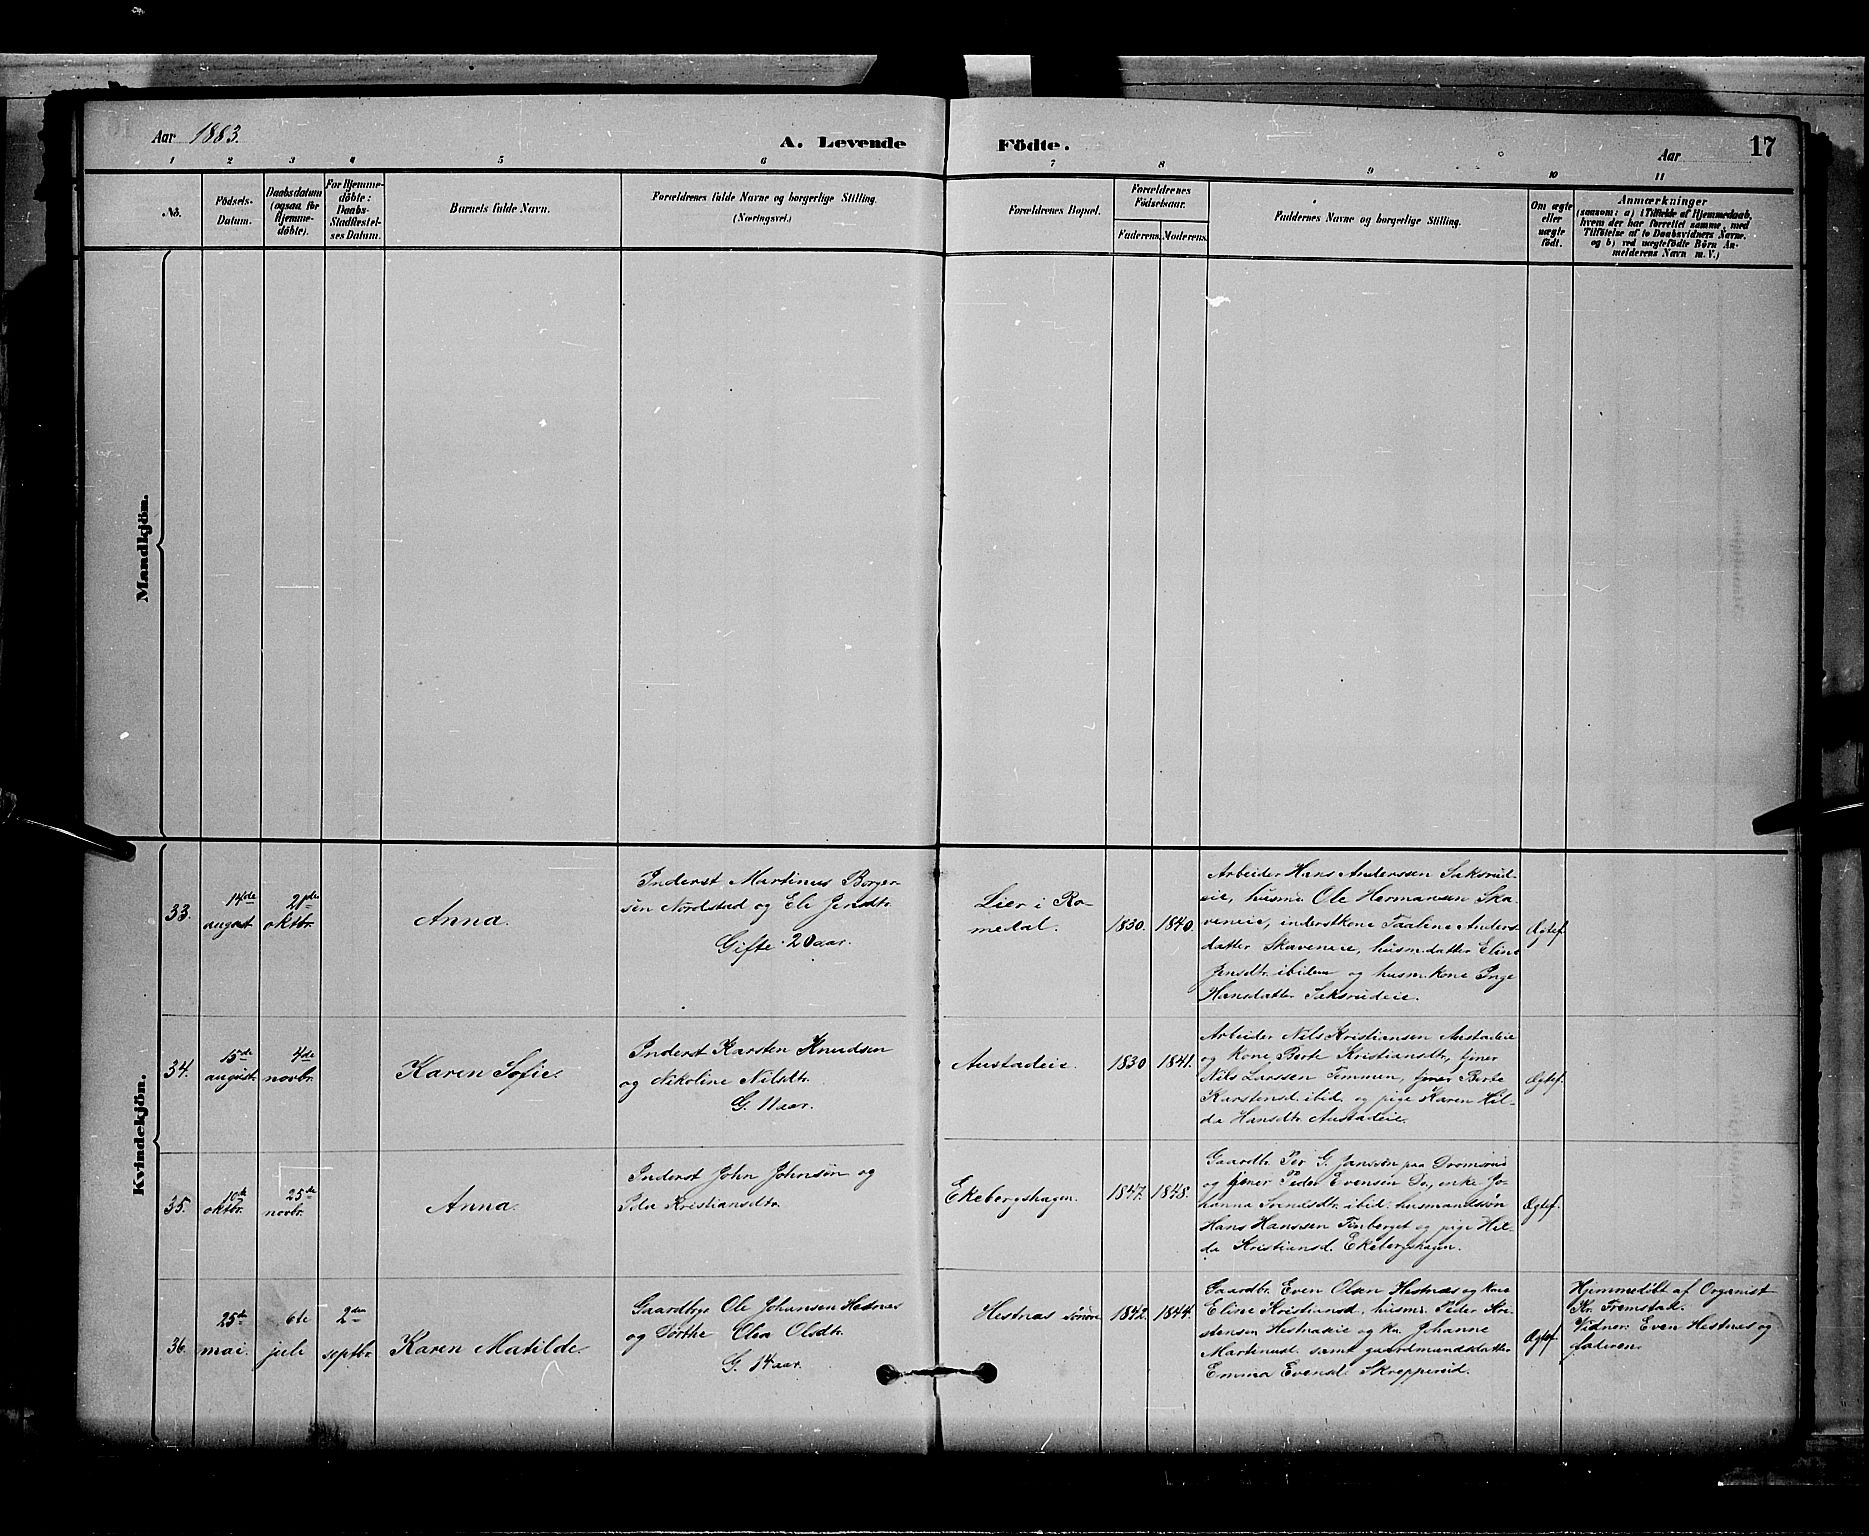 Aar 1883.
A. Levende Födte.
Aar
17
1 2 3 4 5 6 7 8 9 10 11
No.
Födsels-
Datum.
Daabsdatum
(ogsaa for
Hjemme-
döbte).
For Hjemme-
döbte:
Daabs-
Stadfæstel-
ses Datum.
Barnets fulde Navn.
Forældrenes fulde Navne og borgerlige Stilling.
(Næringsvei.)
Forældrenes Bopæl.
Forældrenes
Födselsaar.
Faderens.
Moderens.
Faddernes Navne og borgerlige Stilling.
Om ægte
eller
uægte
födt.
Anmærkninger
(saasom: a) i Tilfælde af Hjemmedaab,
hvem der har forrettet samme, med
Tilföielse af to Daabsvidners Navne,
og b) ved uægtefödte Börn An-
melderens Navn m. V.)
Mandkjön.
Kvindekjön.
33.
14de
august
21de
oktbr.
Anna.
Inderst Martinus Borger-
sen Nordstad og Eli Jensdtr.
Gifte 20 aar.
Lier i Ro-
medal.
1830.
1840.
Arbeider Hans Anderssen Saksrud-
eie, husmd Ole Hermansen Ska-
veneie, inderstkone Taaline Anders-
datter Skaveneie, husm.datter Eline
Jensdtr. ibidem og husm.kone Inge
Hansdatter Saksrudeie.
Ægtef.
34.
15de
august.
4de
novbr.
Karen Sofie.
Inderst Karsten Knudsen
og Nikoline Nilsdtr.
G. 11 aar.
Austadeie.
1830
1841.
Arbeider Nils Kristiansen Austadeie
og Kone Berte Kristiansdtr, tjener
Nils Larssen Temmen, tjener Berte
Karstensd. ibid. og pige Karen Hil-
da Hansdtr. Austadeie.
Ægtef.
35.
10de
oktbr.
25de
novbr.
Anna.
Inderst John Johnsen og
Ida Kristiansdtr.
Ekebergshagen.
1847.
1848.
Gaardbr. Per G. Janssen paa
og tjener Peder Evensen Do, enke Jo-
hanna ibid. husmandssøn
Hans Hanssen Finberget og pige Hil-
da Kristiansd. Ekebergshagen.
Ægtef.
36.
25de
mai.
6te
juli
2den
septbr
Karen Matilde.
Gaardbr. Ole Johansen Hestnæs
og Dorthe Olea Olsdtr.
G. 14 aar.
Hestnæs søndre
1842.
1844.
Gaardbr. Even Olsen Hestnæs og kone
Eline Kristiansd, husmd. Peter Kri-
stensen Hestnæseie og kn. Johanne
Martinusd. samt gaardmandsdatter
Emma Evensd. Skrepperud.
Ægtef.
Hjemmedøbt af Organist
Kr. Fremstad.
Vidner: Even Hestnæs og
faderen.